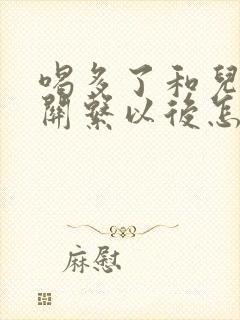 喝多了和兒
關繫以後怎
麻慰